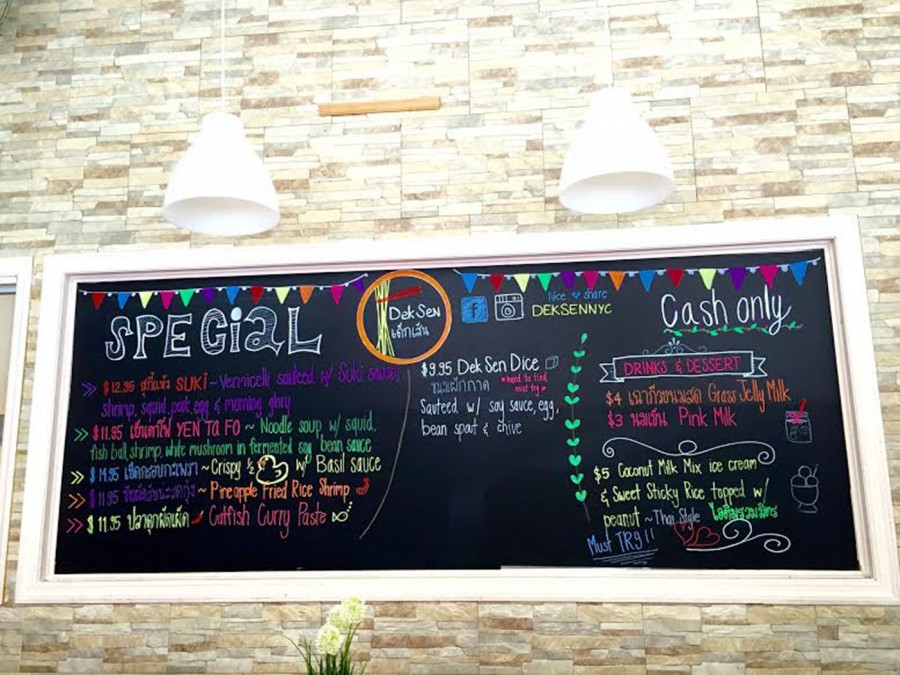 SPECiaL
» $12.95 สุกี้แห้ง SUKI ~ Vermicelli sauteed w/ Suki sauce,
shrimp, squid, pork, egg & morning glory
» $11.95 เย็นตาโฟ YEN TA FO ~ Noodle soup w/ squid,
fish ball, shrimp, white mushroom in fermented soy bean sauce
» $14.95 เป็ดกรอบกะเพรา ~ Crispy ½ w/ Basil sauce
» $11.95 ~ Pineapple Fried Rice Shrimp
» $11.95 ปลาดุกผัดเผ็ด ~ Catfish Curry Paste
Dek Sen
เด็กเส้น
like share
DEKSENNYC
$9.95 Dek Sen Dice
ขนมผักกาด
*hard to find
must try*
Sauteed w/ soy sauce, egg,
bean spout & chive
Cash only
DRINKS & DESSERT
$4 เฉาก๊วยนมสด Grass Jelly Milk
$3 นมเย็น Pink Milk
$5 Coconut Milk Mix ice cream
& Sweet Sticky Rice topped w/
peanut ~ Thai Style ไอติมรวมมิตร
Must TRY!!